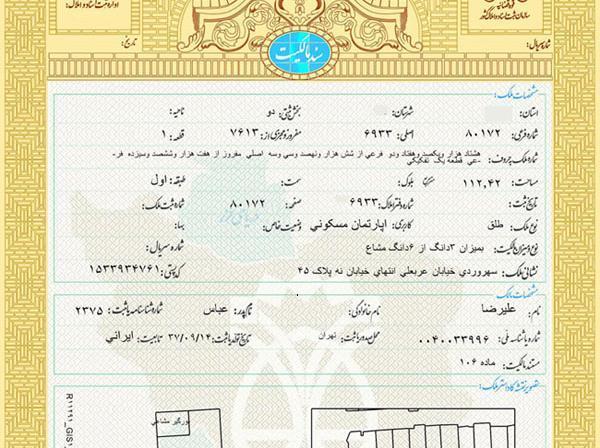 اداره ثبت اسناد و املاک:
قوه قضائیه
سازمان ثبت اسناد و املاک کشور
تاریخ:
سند مالکیت
شماره سریال:
مشخصات ملک:
استان: شهرستان: بخش ثبتی: دو ناحیه:
شماره فرعی: ۸۰۱۷۲ اصلی: ۶۹۳۳ مفروز و مجزی از: ۷۶۱۳ قطعه: ۱
شماره ملک بحروف: هشتاد هزار ویکصد وهفتاد ودو فرعي از شش هزار ونهصد وسي وسه اصلي مفروز از هفت هزار وششصد وسيزده فر-
-عي قطعه يک تفکيکي
مساحت: ۱۱۲,۴۲ مترمربع بلوک: سمت: طبقه: اول
تاریخ ثبت: شماره دفتر املاک: ۶۹۳۳ صفحه: ۸۰۱۷۲ شماره ثبت ملک:
نوع ملک: طلق کاربری: اپارتمان مسکوني وضعیت خاص: بهاء:
نوع و میزان مالکیت: بميزان ۳دانگ از ۶دانگ مشاع شماره سریال:
نشانی ملک: سهروردي خيابان عربعلي انتهاي خيابان نه پلاک ۴۵ کد پستی: ۱۵۳۳۹۳۴۷۶۱
مشخصات مالک:
نام: عليرضا نام خانوادگی: نام پدر: عباس شماره شناسنامه یا ثبت: ۲۳۷۵
شماره یا شناسه ملی: ۰۰۴۰۰۳۳۹۹۶ محل صدور یا ثبت: تهران تاریخ تولد یا ثبت: ۳۷/۰۹/۱۴ تابعیت: ايراني
مستند مالکیت: ماده ۱۰۶
تصویر نقشه کاداستر ملک:
نورگير مشاعي